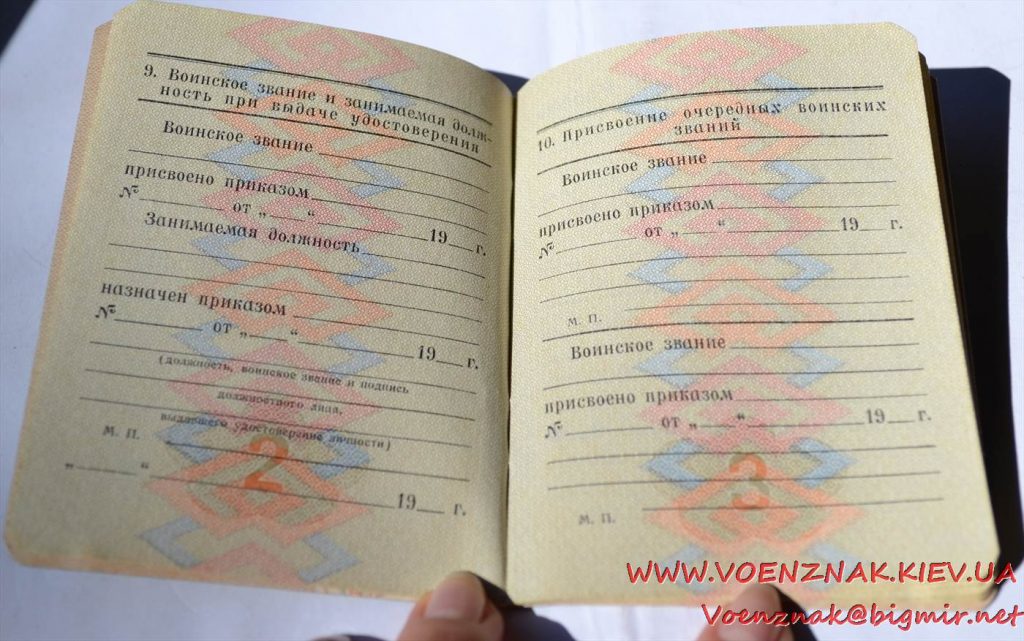 9. Воинское звание и занимаемая долж-
ность при выдаче удостоверения
Воинское звание
присвоено приказом
№ от „ “ 19 г.
Занимаемая должность
назначен приказом
№ от „ “
19 г.
(должность, воинское звание и подпись
должностного лица,
выдавшего удостоверение личности)
М. П.
„ “ 19 г.
2
10. Присвоение очередных воинских
званий
Воинское звание
присвоено приказом
№ от „ “ 19 г.
М. П.
Воинское звание
присвоено приказом
№ от „ “ 19 г.
М. П.
3
WWW.VOENZNAK.KIEV.UA
Voenznak@bigmir.net